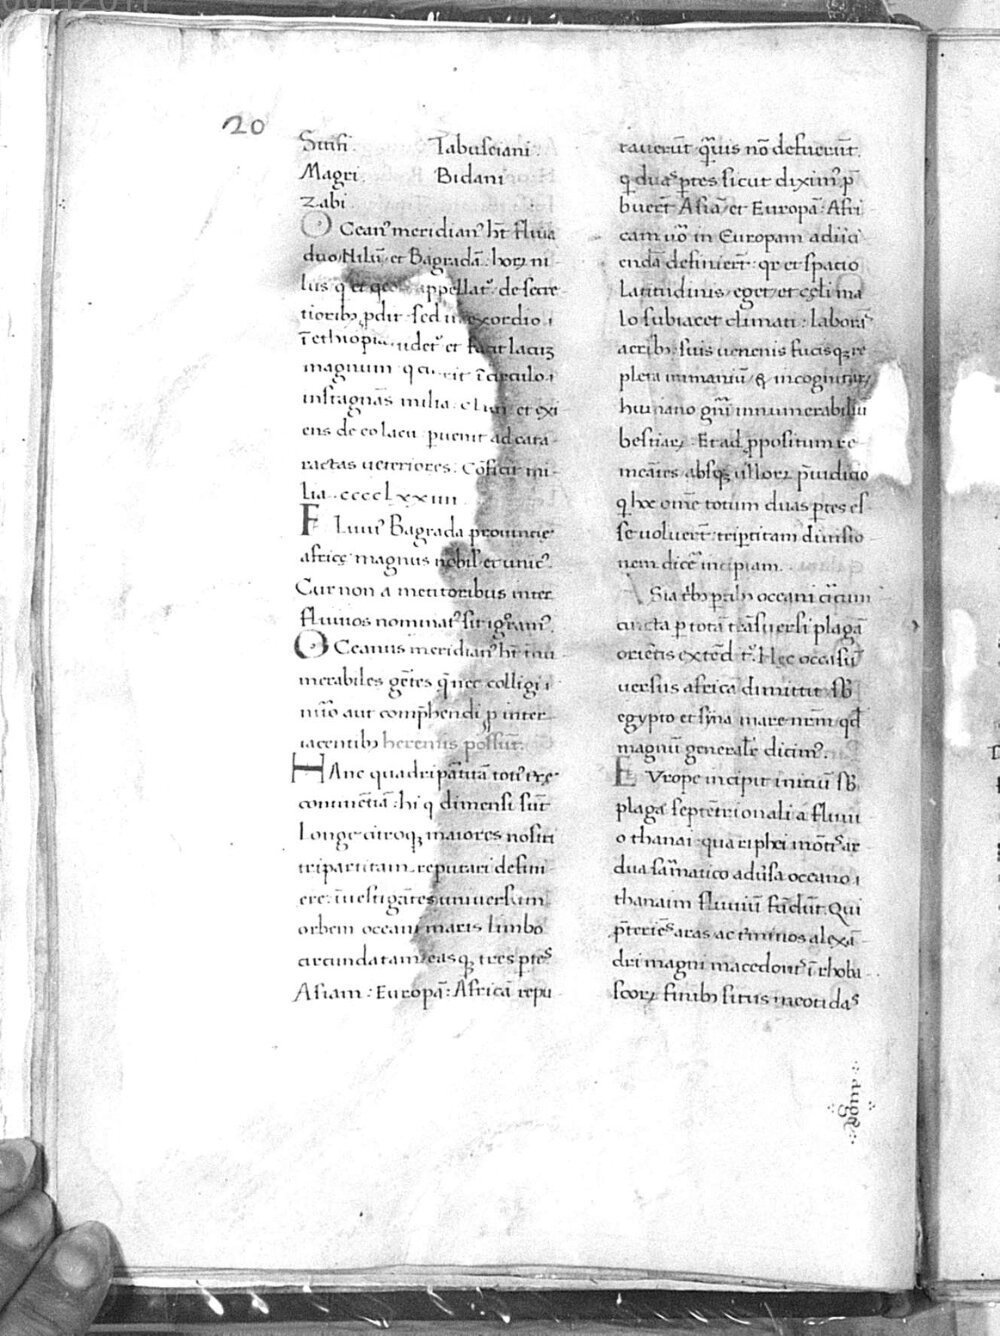 20
Suisi. Tabuseiani.
Magri. Bidani
zabi
OCean᾽ meridian᾽ ht̄ fluia
duo. Nilū et Bagradā. horꝝ ni-
lus q̄ et geo appellat᾽. de secre-
tiorib; ꝓdit. sed in exordio i
ī ethiopia. udet᾽ et facit lacū
magnum q cu rit ī circulo. i
instagnās milia. cliiii. et exi
ens de eo lacu puenit ad cata-
ractas ueteriores. Cōficit mi-
lia. cccclxxiiii
FLuui᾽ Bagrada prouincię
africę magnus nobil᾽ et unic᾽.
Cur non a metitoribus inter
fluuios nominat᾽ sit igr̄am᾽.
OCeanus meridian᾽ ht̄ inu-
merabiles gētes q̄ nec colligi i
nūo aut comp̄hendi ꝓ inter-
iacentib; heremis possūt.
HAnc quadripātitā toti᾽ trę
continētiā. hi q dimensi sūt
Longe citroq; maiores nostri
tripartitam reputari defini-
ere. īuestigātes uniuersum
orbem oceani maris limbo
circundatam. easq; tres ptes
Asiam: Europā: Africā repu-
tauerūt. quis nō defuerūt.
q duas ptes sicut dixim᾽ p̄
buerēt Asiā et Europā: Afri
cam uō in Europam adiici
endā definierēt. qr et spatio
Latitudinis eget et cęli ma-
lo subiacet climati: laborās
aerib; suis uenenis fucisq; re
pleta immaniū & incognitarꝝ
humano gnī innumerabiliū
bestiarꝝ. Et ad ꝓpositum re-
meātes absq; ullorꝝ p̄iudicio
q hoc ome totum duas ptes es-
se uoluerēt. tripartitam diuisio-
nem dicē incipiam.
ASia trib; partib; oceani circum-
cincta p totā trāsuersi plagā
oriētis extēd t᾽. Hęc occasū
uersus africā dimittit sb
egypto et syria mare nrm qd
magnū generalr̄ dicim᾽.
EUrope incipit initiū sb
plaga septētrionali a fluui
o thanai. qua riphei mōtes ar
dua sarmatico aduersa oceano. i
thanaim fluuiū fūdūt. Qui
p̄teriēs aras ac tminos alexā-
dri magni macedonis ī rhoba-
scorꝝ finib; situs meotidas